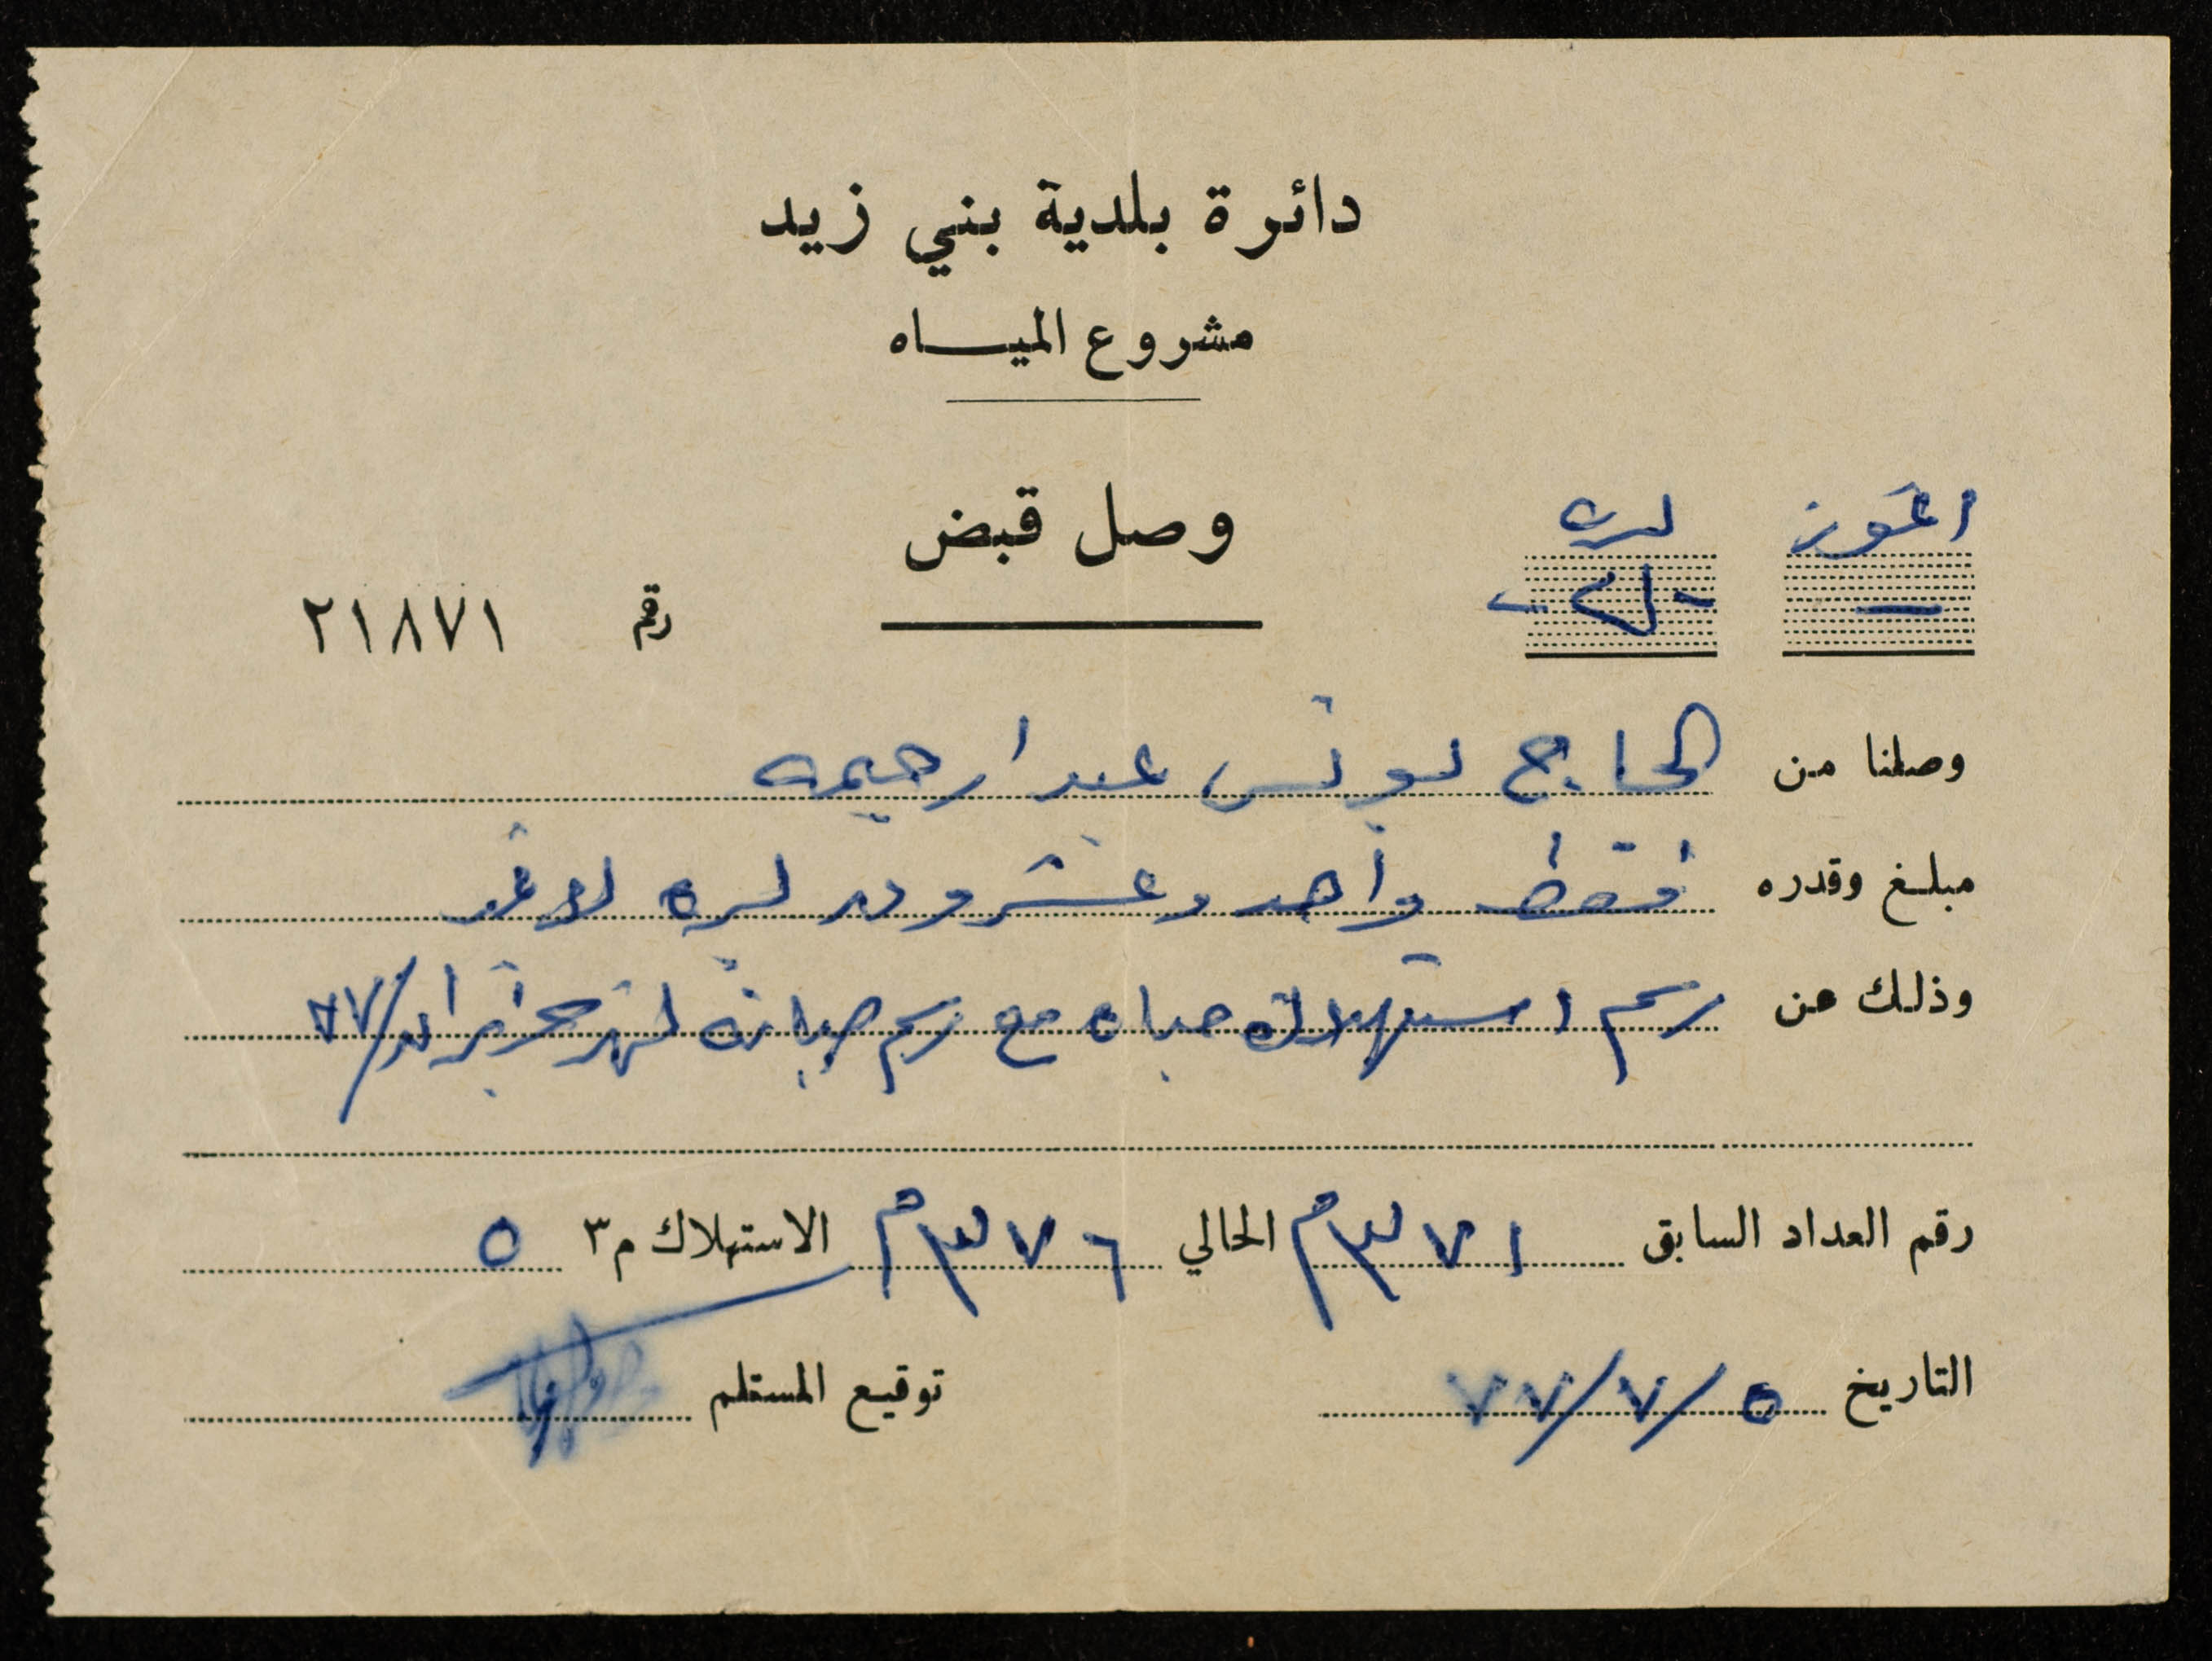 دائرة بلدية بني زيد
مشروع المياه
وصل قبض
اغورة ليره
- -/٢١-
رقم ٢١٨٧١
وصلنا من الحاج يونس عبد ارحيمه
مبلغ وقدره فقط واحد وعشرون ليره لاغير
وذلك عن رسم استهلاك مياه مع رسم صيانه لشهر حزيران/٧٧
رقم العداد السابق ٣٧١م الحالي ٣٧٦م الاستهلاك م٣ ٥
التاريخ ٥/٧/٧٧ توقيع المستلم